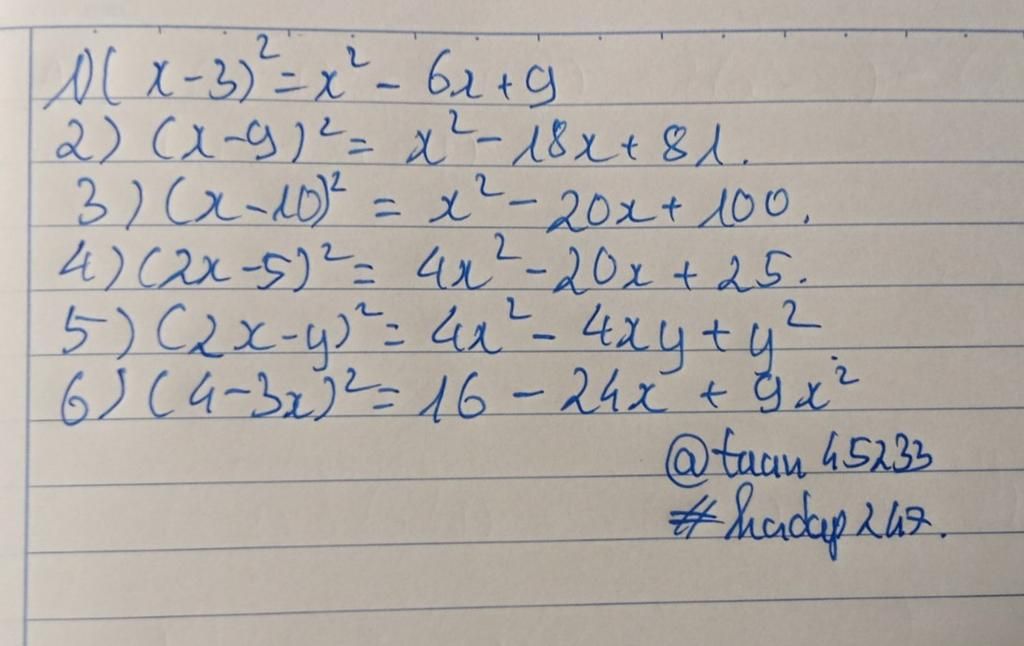 1)(x-3)²=x²-6x+9
2) (x-9)²= x²-18x+81.
3) (x-10)² = x²-20x+100.
4) (2x-5)²= 4x²-20x+25.
5) (2x-y)²= 4x²-4xy+y²
6) (4-3x)²=16-24x+9x²
@taan45233
#hadap247.